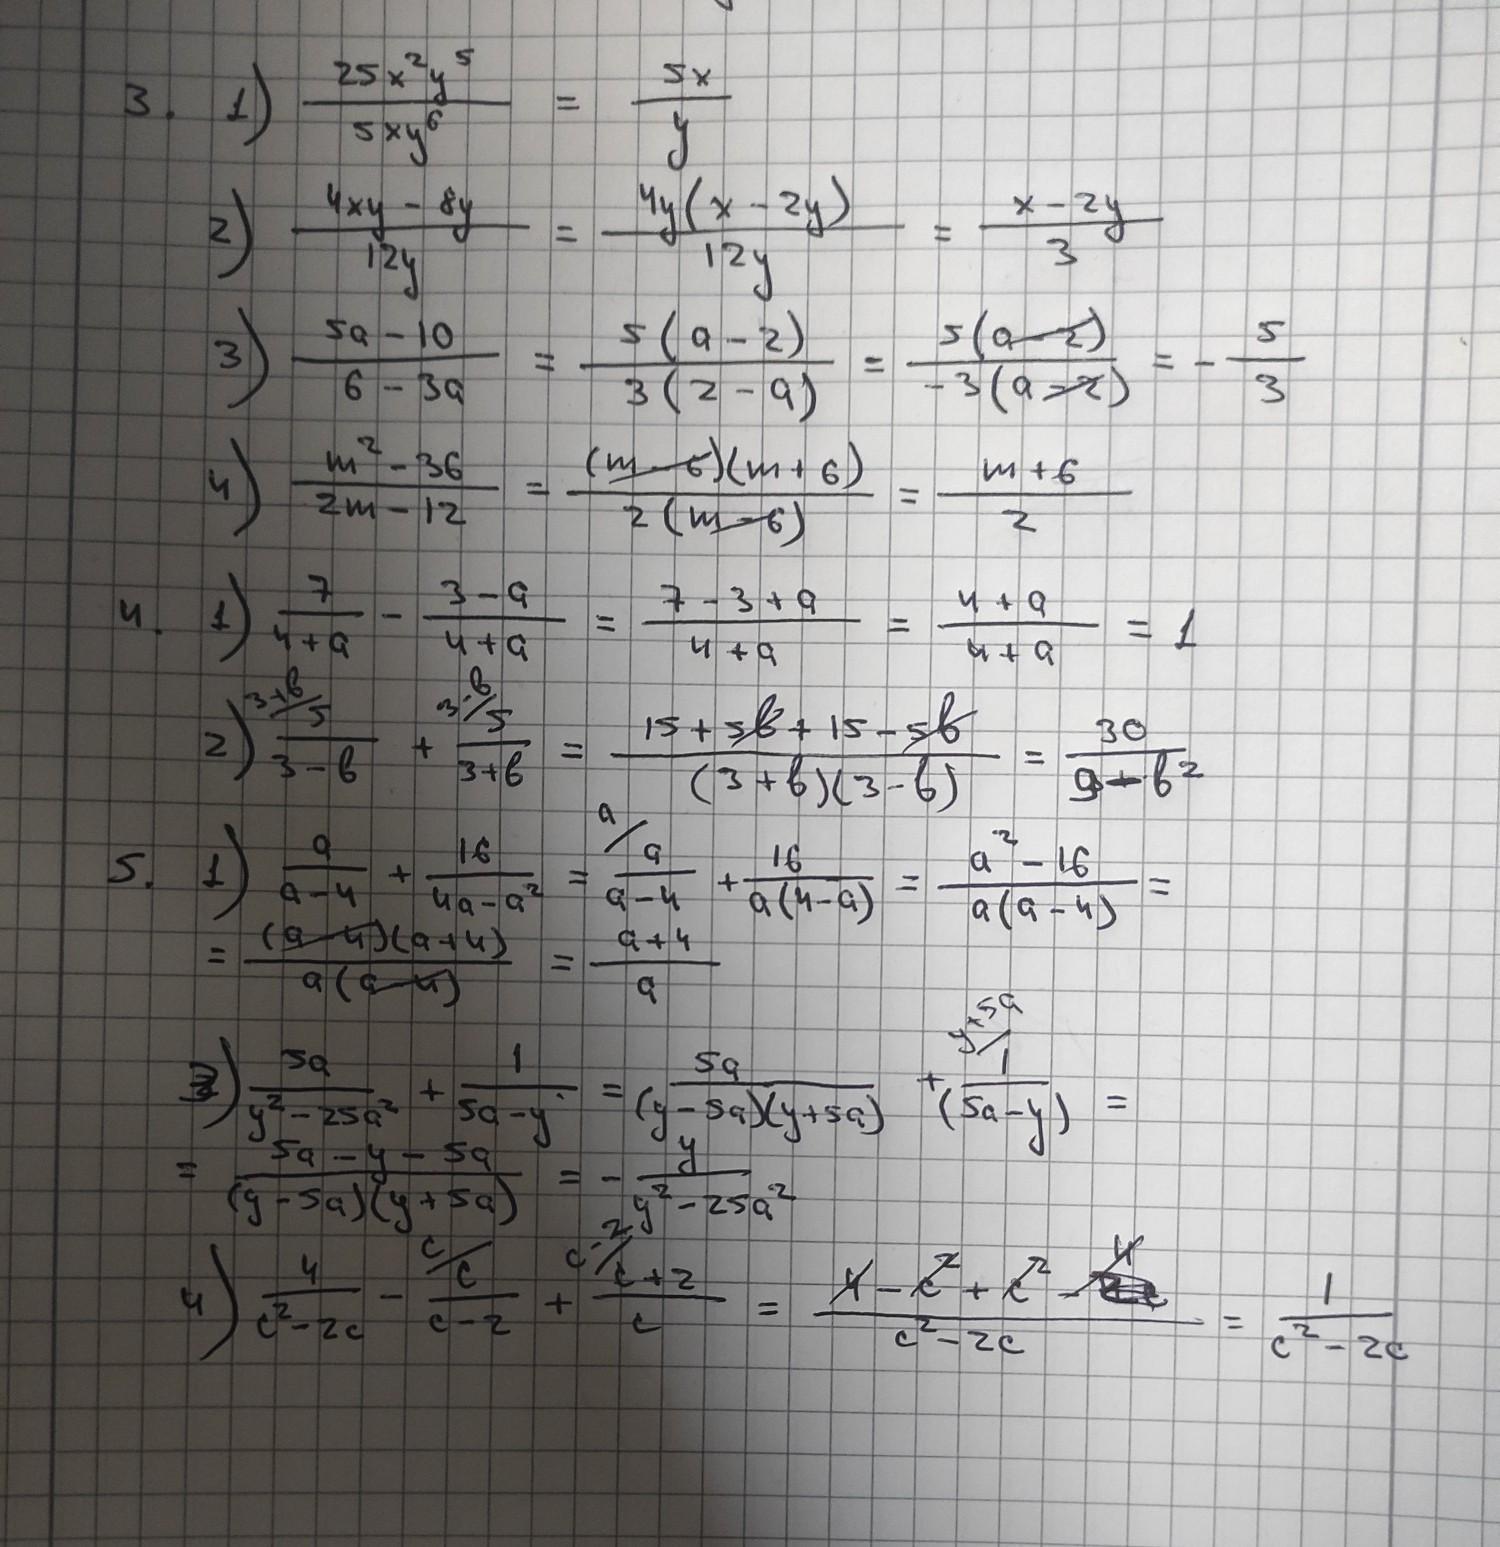 3. 1) 25x²y⁵/5xy⁶ = 5x/y
2) 4xy - 8y/12y = 4y(x - 2y)/12y = x - 2y/3
3) 5a - 10/6 - 3a = 5(a - 2)/3(2 - a) = 5(a - 2)/-3(a - 2) = - 5/3
4) m² - 36/2m - 12 = (m - 6)(m + 6)/2(m - 6) = m + 6/2
4. 1) 7/4 + a - 3 - a/4 + a = 7 - 3 + a/4 + a = 4 + a/4 + a = 1
2) 3+b/ 5/3 - b + 3-b/ 5/3 + b = 15 + 5b + 15 - 5b/(3 + b)(3 - b) = 30/9 - b²
5. 1) a/a - 4 + 16/4a - a² = a/ a/a - 4 + 16/a(4 - a) = a² - 16/a(a - 4) =
= (a - 4)(a + 4)/a(a - 4) = a + 4/a
) 5a/y² - 25a² + 1/5a - y = 5a/(y - 5a)(y + 5a) + y+5a/ 1/(5a - y) =
= 5a - y - 5a/(y - 5a)(y + 5a) = - y/y² - 25a²
4) 4/c² - 2c - c/ c/c - 2 + c-2/ c + 2/c = 4 - c² + c² - 4/c² - 2c = 1/c² - 2c